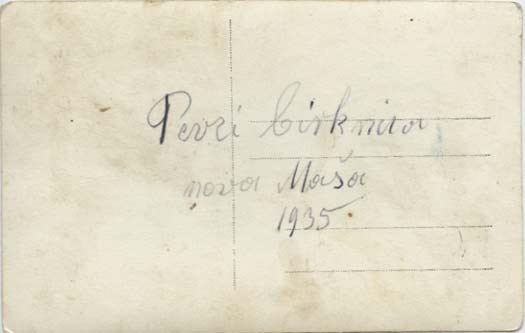 Pevci Cirknica
nova Maša
1935